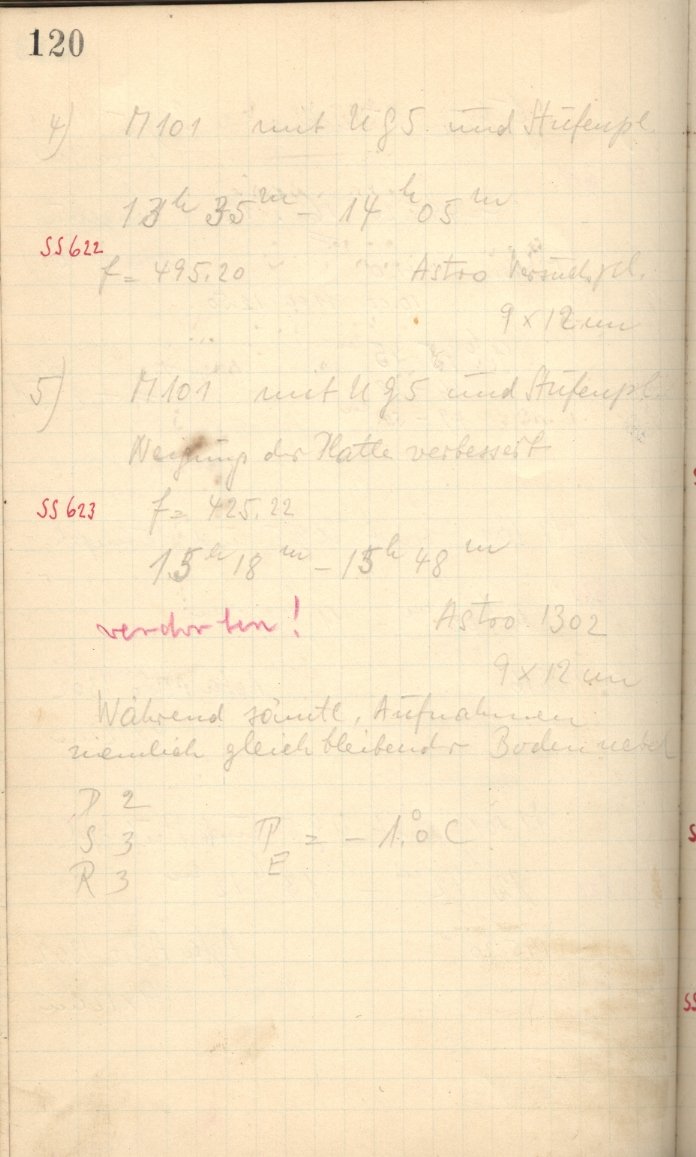 120
4) M101 mit UG5 und Stufenpl.
13h 35m - 14h 05m
SS622
f = 495.20 Astro Versuchspl.
9 x 12 cm
5) M101 mit UG5 und Stufenpl.
Neigung der Platte verbessert
SS623 f = 425.22
15h 18m - 15h 48m
verdorben! Astro 1302
9 x 12 cm
Während sämtl. Aufnahmen
ziemlich gleichbleibender Bodennebel
D 2
S 3 T = - 1.°0 C
R 3 E